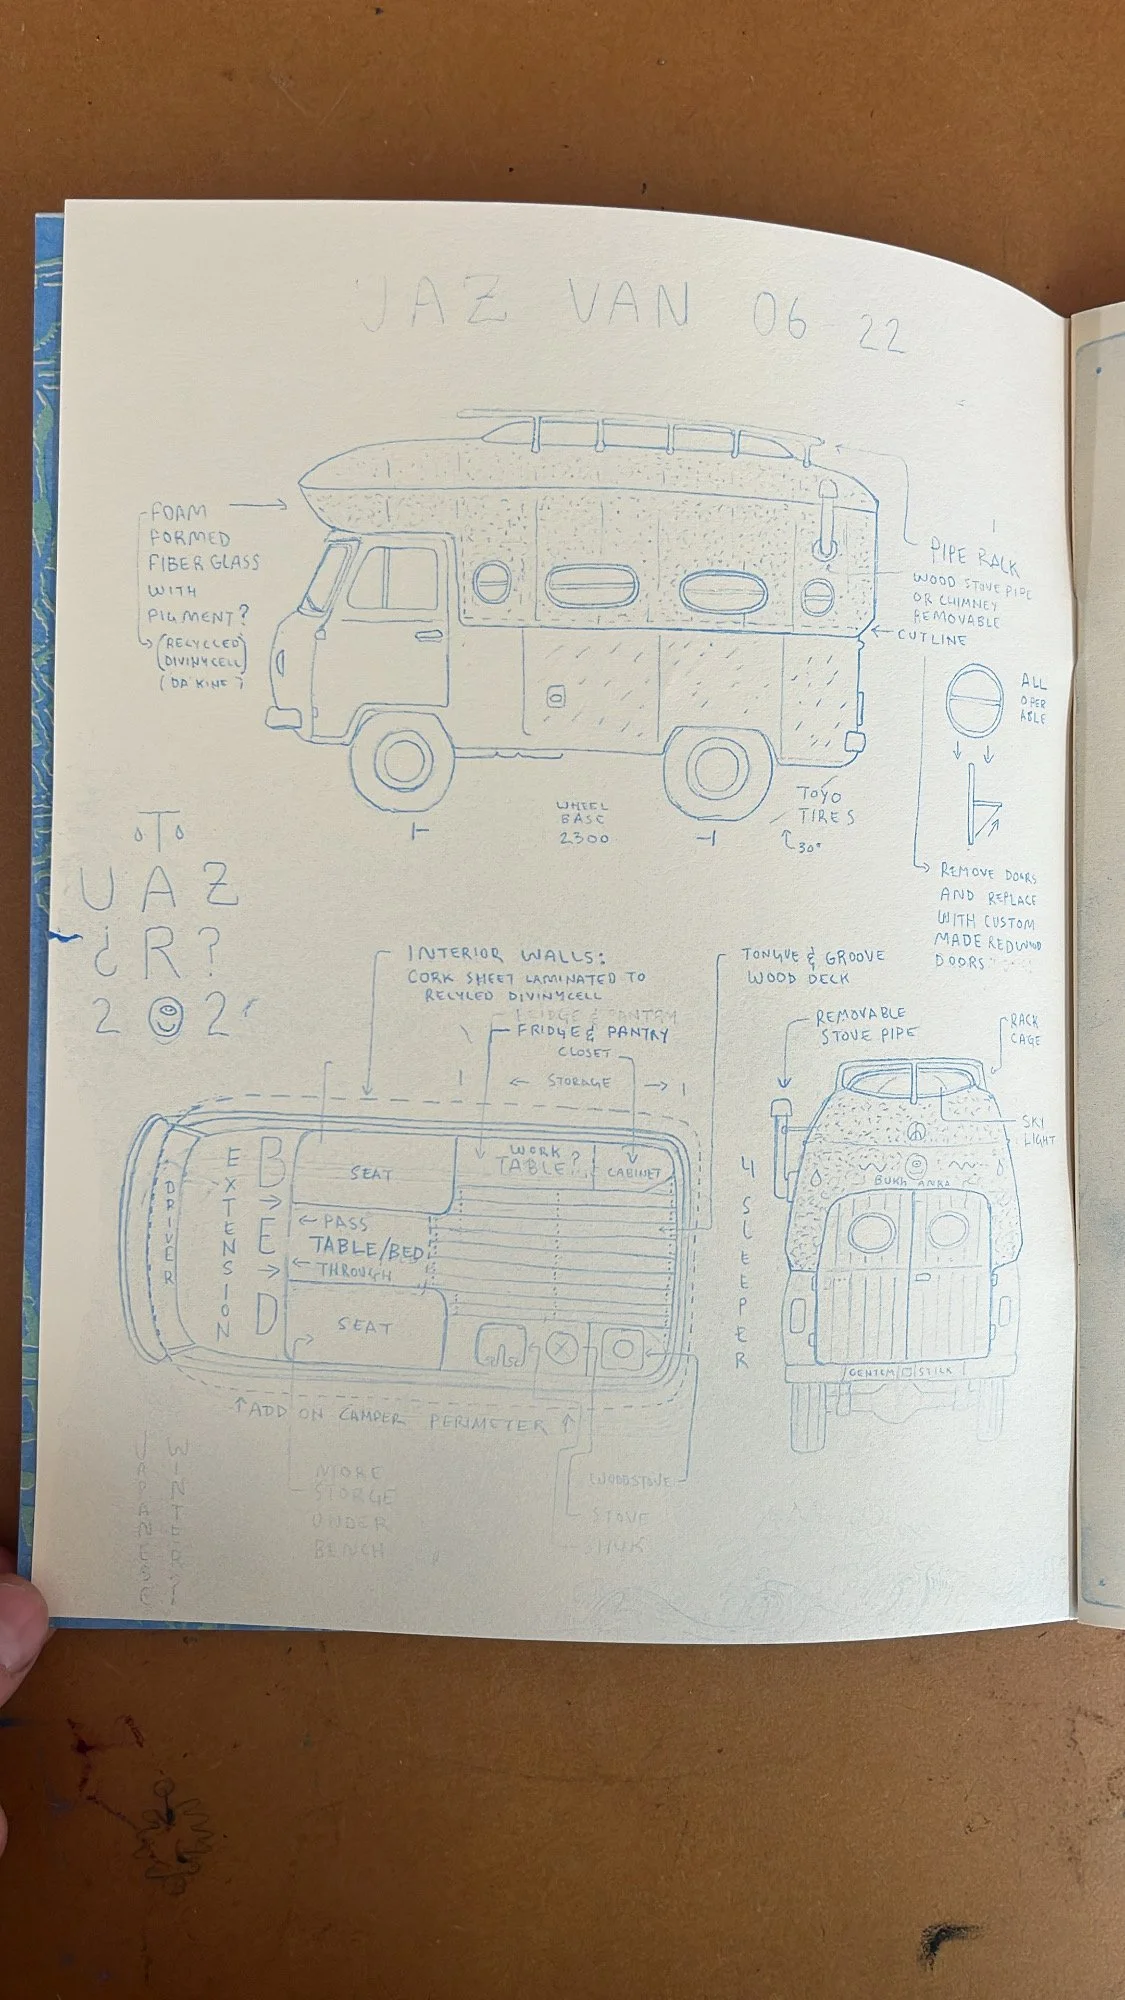 UAZ VAN 06 22
FOAM
FORMED
FIBERGLASS
WITH
PIGMENT?
(RECYCLED)
DIVINYCELL
(DA KINE)
PIPE RACK
WOOD STOVE PIPE
OR CHIMNEY
REMOVABLE
CUTLINE
ALL
OPER
ABLE
WHEEL
BASE
2300
TOYO
TIRES
30°
REMOVE DOORS
AND REPLACE
WITH CUSTOM
MADE REDWOOD
DOORS
T
UAZ
¿R?
2 2
INTERIOR WALLS:
CORK SHEET LAMINATED TO
RECYLED DIVINYCELL
FRIDGE & PANTRY
FRIDGE & PANTRY
CLOSET
← STORAGE →
TONGUE & GROOVE
WOOD DECK
REMOVABLE
STOVE PIPE
RACK
CAGE
SKY
LIGHT
DRIVER
EXTENSION
BED
SEAT
← PASS
TABLE/BED
← THROUGH
SEAT
WORK
TABLE?
CABINET
4 SLEEPER
↑ADD ON CAMPER PERIMETER↑
MORE
STORGE
UNDER
BENCH
WOODSTOVE
STOVE
SINK
JAPANESE
WINTERS!